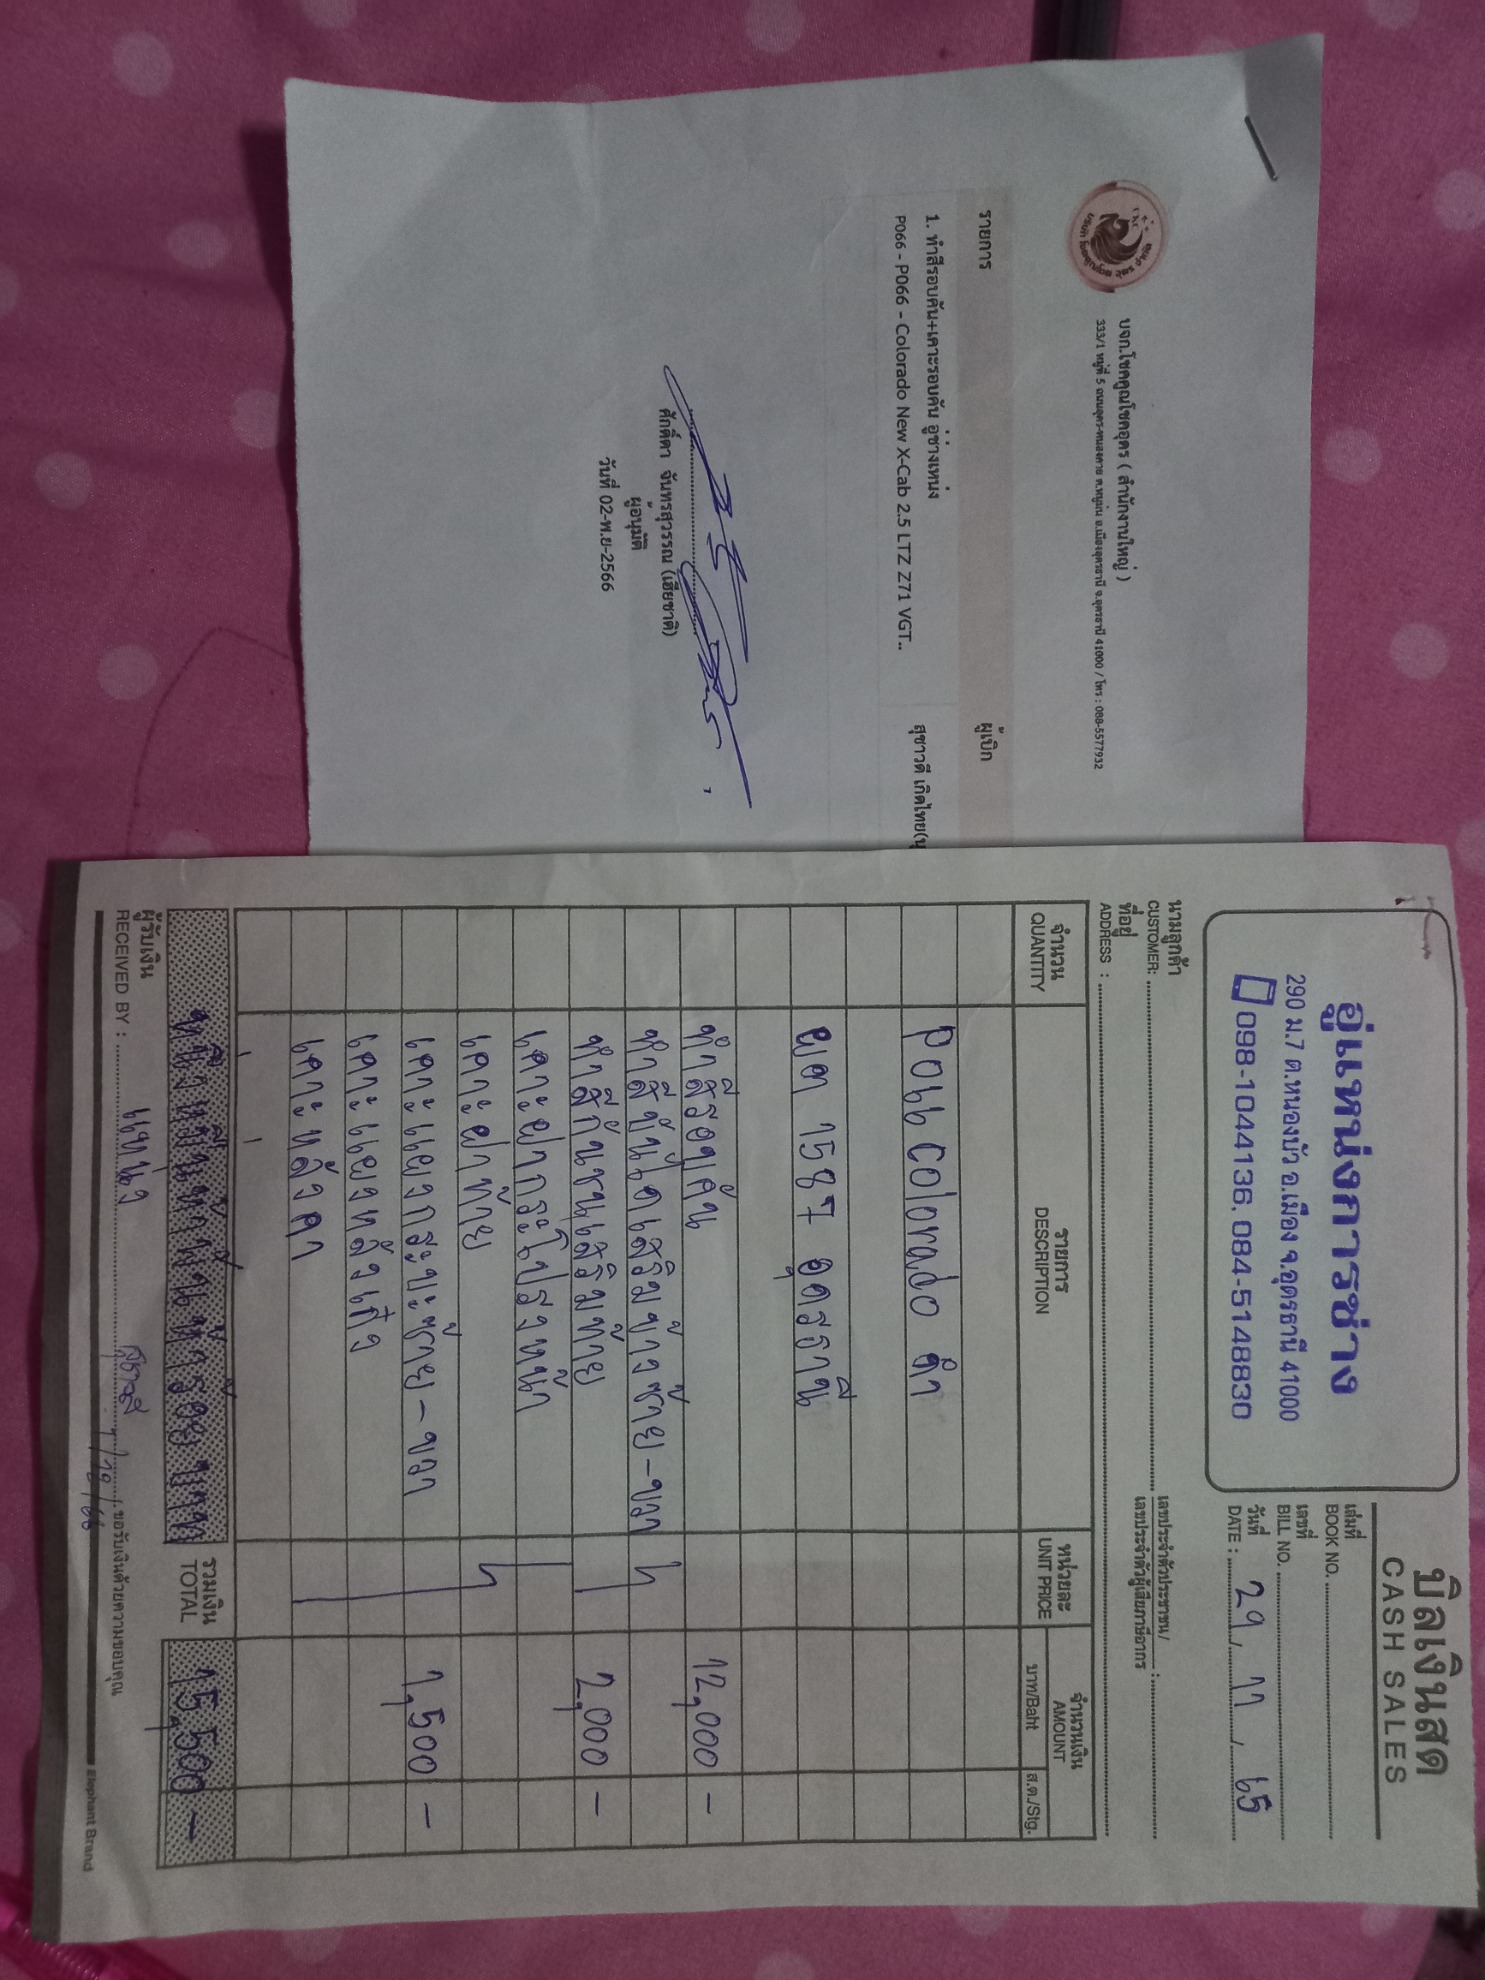 บจก.โชคคูณโชคอุดร ( สำนักงานใหญ่ )
333/1 หมู่ที่ 5 ถนนอุดร-หนองคาย ต.หมูม่น อ.เมืองอุดรธานี จ.อุดรธานี 41000 / โทร : 088-5577932
รายการ ผู้เบิก
1. ทำสีรอบคัน+เคาะรอบคัน อู่ช่างเหน่ง สุชาวดี เกิดไทย(นุ
P066 - P066 - Colorado New X-Cab 2.5 LTZ Z71 VGT..
ศักดิ์ดา จันทรสุวรรณ (เฮียชาติ)
ผู้อนุมัติ
วันที่ 02-พ.ย-2566
บิลเงินสด
CASH SALES
อู่แหน่งการช่าง
290 ม.7 ต.หนองบัว อ.เมือง จ.อุดรธานี 41000
098-1044136, 084-5148830
เล่มที่
BOOK NO.
เลขที่
BILL NO.
วันที่
DATE : 29 / 11 / 65
นามลูกค้า
CUSTOMER:
เลขประจำตัวประชาชน/
เลขประจำตัวผู้เสียภาษีอากร :
ที่อยู่
ADDRESS :
จำนวน รายการ หน่วยละ จำนวนเงิน
QUANTITY DESCRIPTION UNIT PRICE AMOUNT
บาท/Baht ส.ต./Stg.
P066 Colorado ดำ
ผต 1587 อุดรธานี
ทำสีรอบคัน 12,000 -
ทำสีบันไดเสริมข้างซ้าย-ขวา
ทำสีกันชนเสริมท้าย 2,000 -
เคาะฝากระโปรงหน้า
เคาะฝาท้าย
เคาะแยงกระบะซ้าย-ขวา 1,500 -
เคาะแยงหลังเก๋ง
เคาะหลังคา
หนึ่งหมื่นห้าพันห้าร้อยบาท รวมเงิน 15,500 -
TOTAL
ผู้รับเงิน
RECEIVED BY : แหน่ง 1/12/66 ขอรับเงินด้วยความขอบคุณ
Elephant Brand